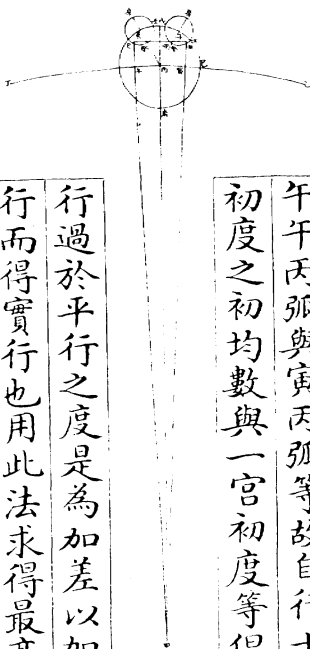 午午丙弧與寅丙弧等故自行
初度之初均數與一宮初度等
行過於平行之度是為加差以
行而得實行也用此法求得最